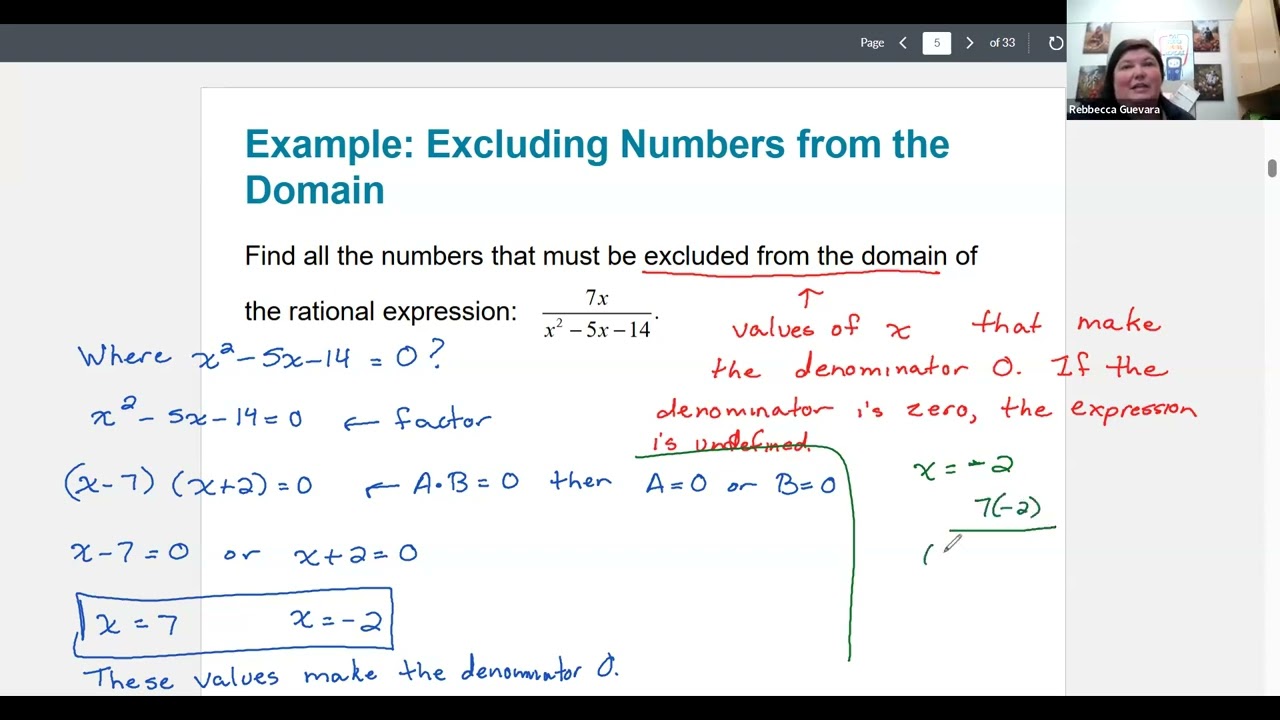 Page 5 of 33
Rebbecca Guevara
Example: Excluding Numbers from the
Domain
Find all the numbers that must be excluded from the domain of
the rational expression: 7x / x² − 5x − 14.
↑
values of x that make
the denominator 0. If the
denominator is zero, the expression
is undefined.
Where x² − 5x − 14 = 0?
x² − 5x − 14 = 0 ← factor
(x − 7) (x + 2) = 0 ← A·B = 0 then A = 0 or B = 0
x − 7 = 0 or x + 2 = 0
x = 7 x = −2
These values make the denominator 0.
x = −2
7(−2)
(